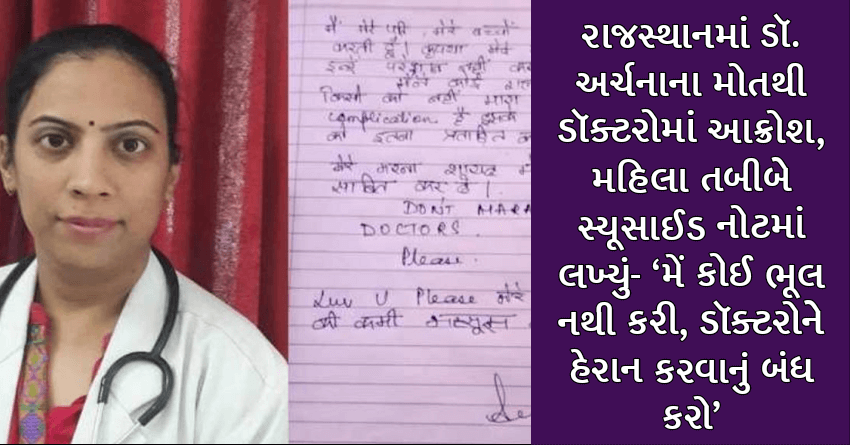 मैं मेरे पति, मेरे बच्चों
करती हूँ। कृपया मेरे
इन्हें परेशान नहीं कर
मैंने कोई
किसी को नहीं मारा
complication है इसके
को इतना प्रताड़ित
मेरा मरना शायद
साबित कर दे।
DON'T HARA
DOCTORS.
Please.
Luv U Please मेरे
की कमी महसूस
રાજસ્થાનમાં ડૉ.
અર્ચનાના મોતથી
ડૉક્ટરોમાં આક્રોશ,
મહિલા તબીબે
સ્યૂસાઈડ નોટમાં
લખ્યું- ‘મેં કોઈ ભૂલ
નથી કરી, ડૉક્ટરોને
હેરાન કરવાનું બંધ
કરો’